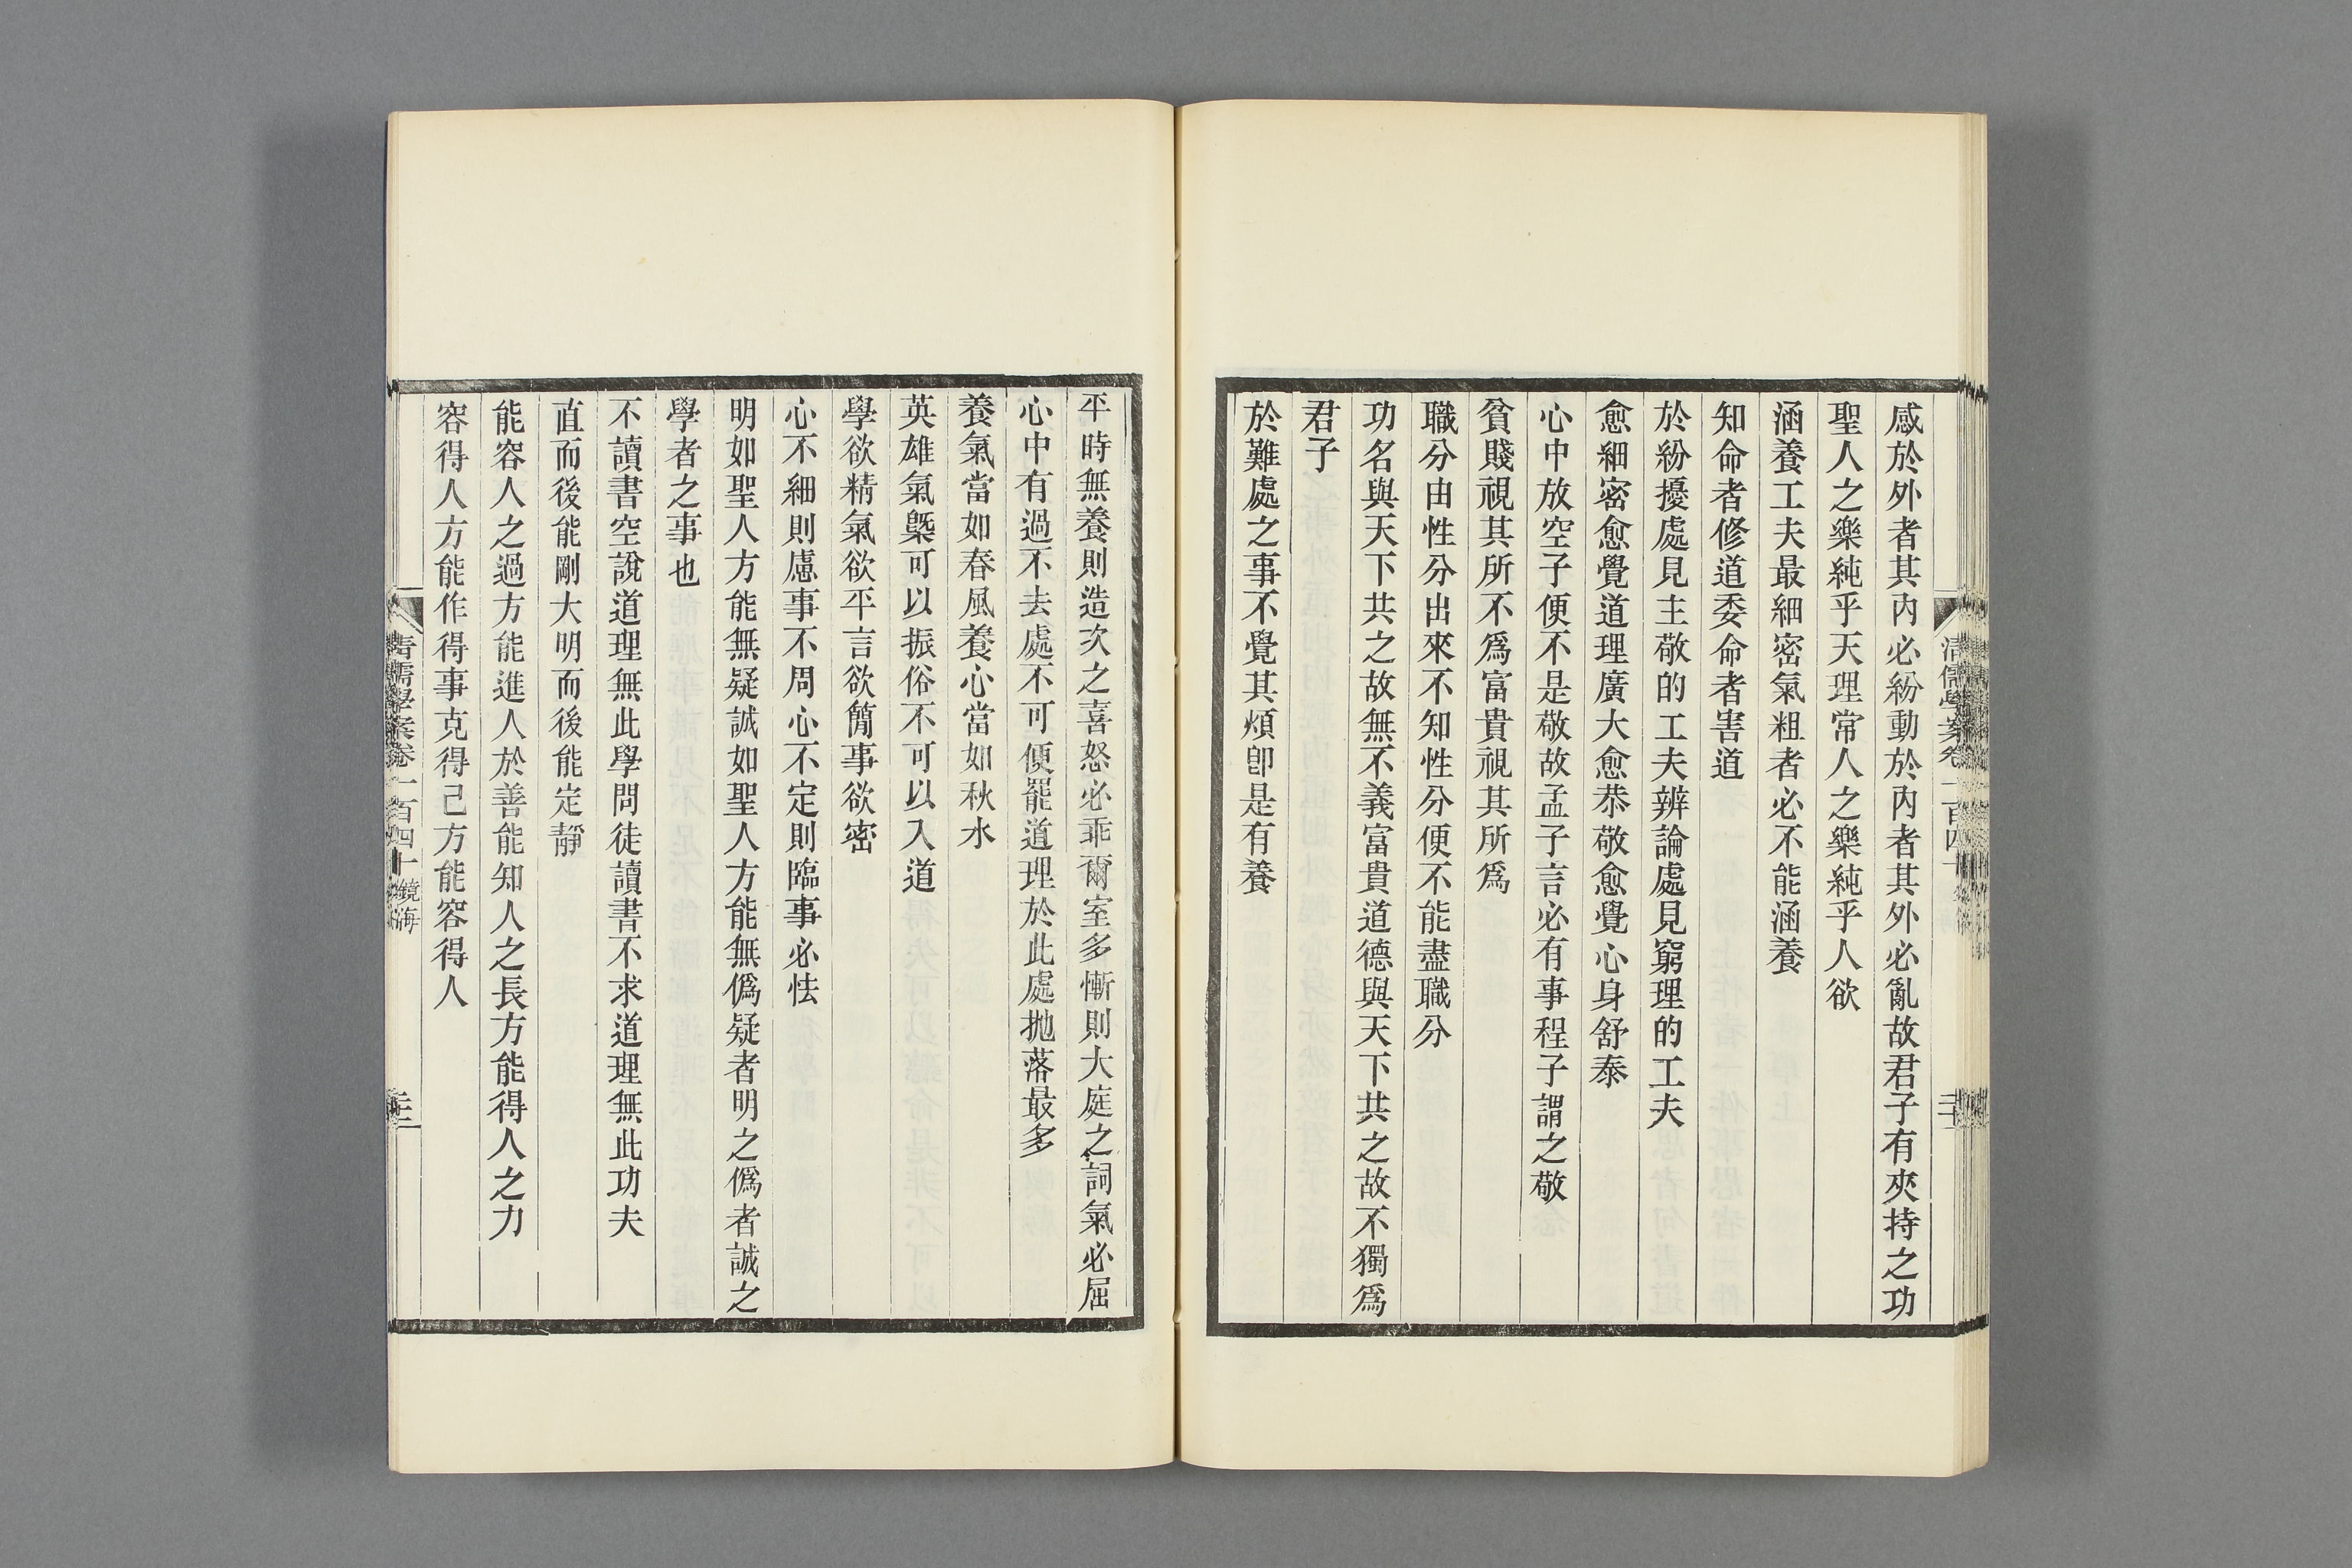 感於外者其內必紛動於內者其外必亂故君子有夾持之功
聖人之樂純乎天理常人之樂純乎人欲
涵養工夫最細密氣粗者必不能涵養
知命者修道委命者害道
於紛擾處見主敬的工夫辨論處見窮理的工夫
愈細密愈覺道理廣大愈恭敬愈覺心身舒泰
心中放空子便不是敬故孟子言必有事程子謂之敬
貧賤視其所不爲富貴視其所爲
職分由性分出來不知性分便不能盡職分
功名與天下共之故無不義富貴道德與天下共之故不獨爲
君子
於難處之事不覺其煩卽是有養
平時無養則造次之喜怒必乖爾室多慚則大庭之詞氣必屈
心中有過不去處不可便罷道理於此處拋落最多
養氣當如春風養心當如秋水
英雄氣槩可以振俗不可以入道
學欲精氣欲平言欲簡事欲密
心不細則慮事不周心不定則臨事必怯
明如聖人方能無疑誠如聖人方能無僞疑者明之僞者誠之
學者之事也
不讀書空說道理無此學問徒讀書不求道理無此功夫
直而後能剛大明而後能定靜
能容人之過方能進人於善能知人之長方能得人之力
容得人方能作得事克得己方能容得人
清儒學案卷一百四十 鏡海